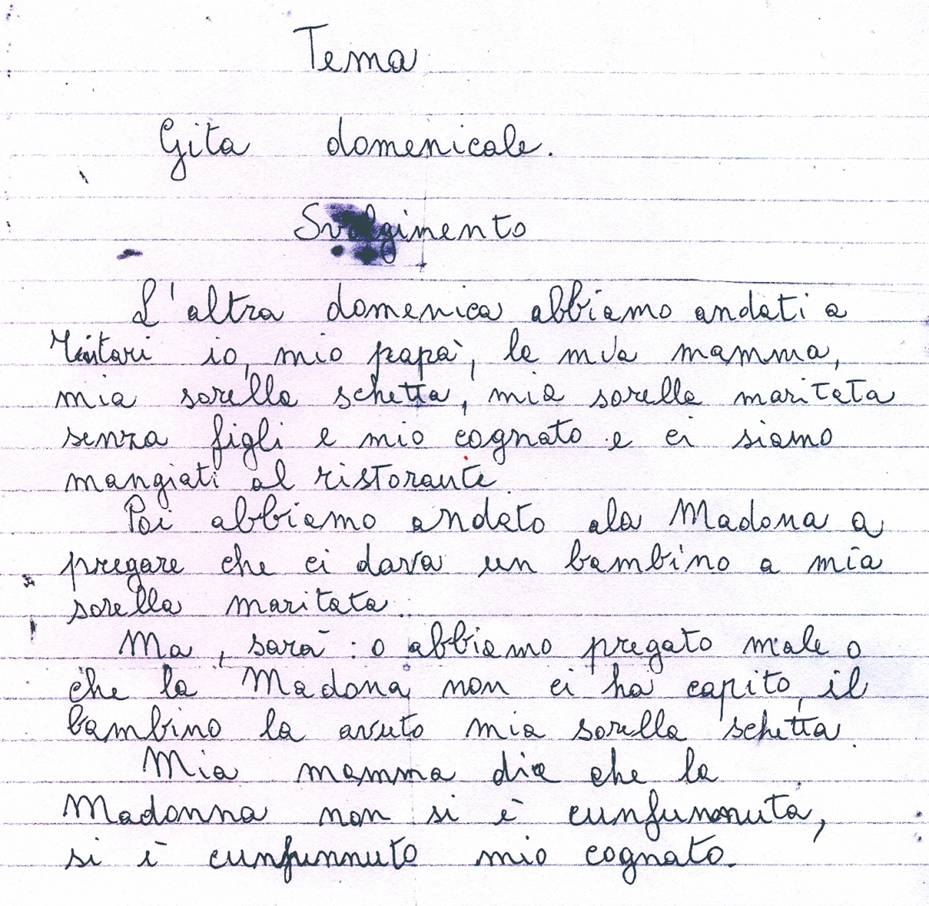 Tema
Gita domenicale.
Svolgimento
L'altra domenica abbiamo andati a
Tintari io, mio papà, la mia mamma,
mia sorella schetta, mia sorella maritata
senza figli e mio cognato e ci siamo
mangiati al ristorante
Poi abbiamo andato ala Madona a
pregare che ci dava un bambino a mia
sorella maritata.
Ma, sarà: o abbiamo pregato male o
che la Madona non ci ha capito, il
bambino la avuto mia sorella schetta.
Mia mamma dice che la
Madonna non si è cunfunnuta,
si è cunfunnuto mio cognato.